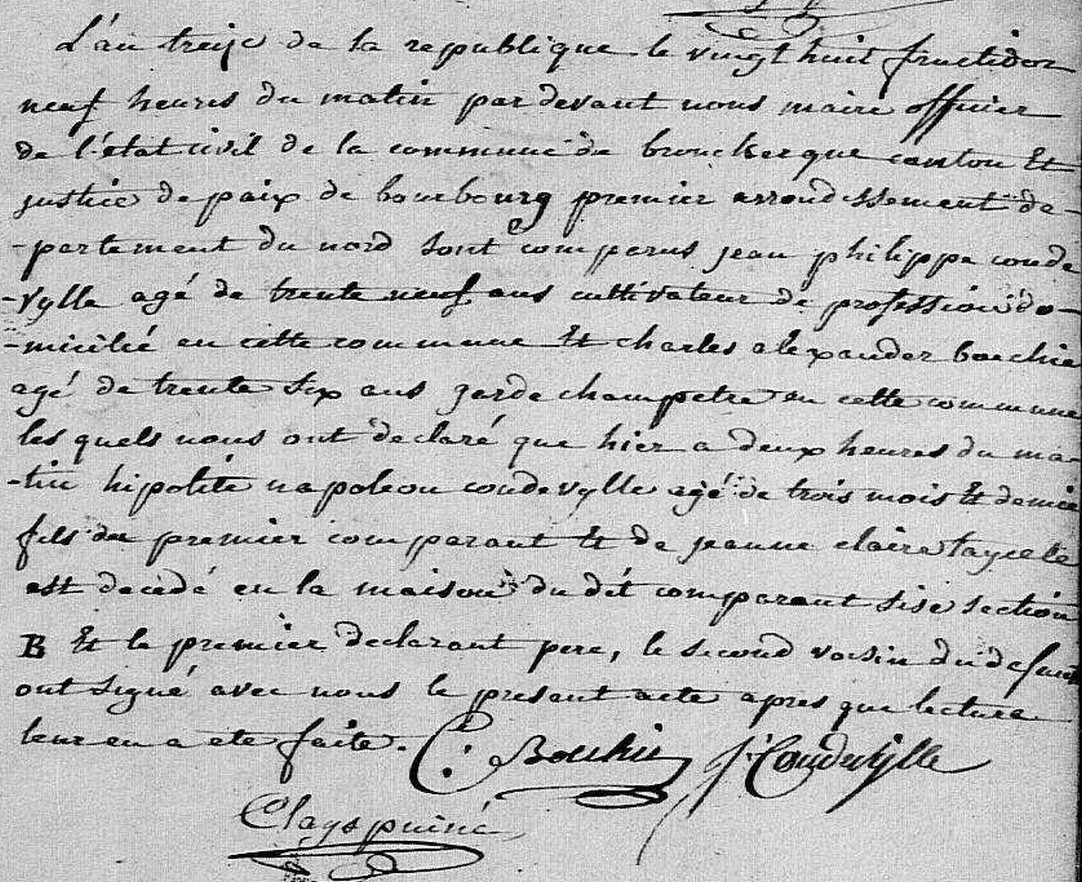 L'an treize de la republique le vingt huit fructidor
neuf heures du matin par devant nous maire officier
de l'état civil de la commune de brouckerque canton Et
justice de paix de bourbourg premier arrondissement de-
-partement du nord sont comparus jean philippe conde
-vylle agé de trente neuf ans cultivateur de profession do-
-micilié en cette commune Et charles alexander bouchie
agé de trente six ans garde champetre en cette commune
les quels nous ont declaré que hier a deux heures du ma-
-tin hipolite napoleon condevylle agé de trois mois Et demie
fils du premier comparant Et de jeanne claire
est decedé en la maison du dit comparant sise section
B Et le premier declarant pere, le second voisin du defunt
ont signé avec nous le present acte apres que lecture
leur en a ete faite. C: Bouchie j: Condevylle
Clays puiné